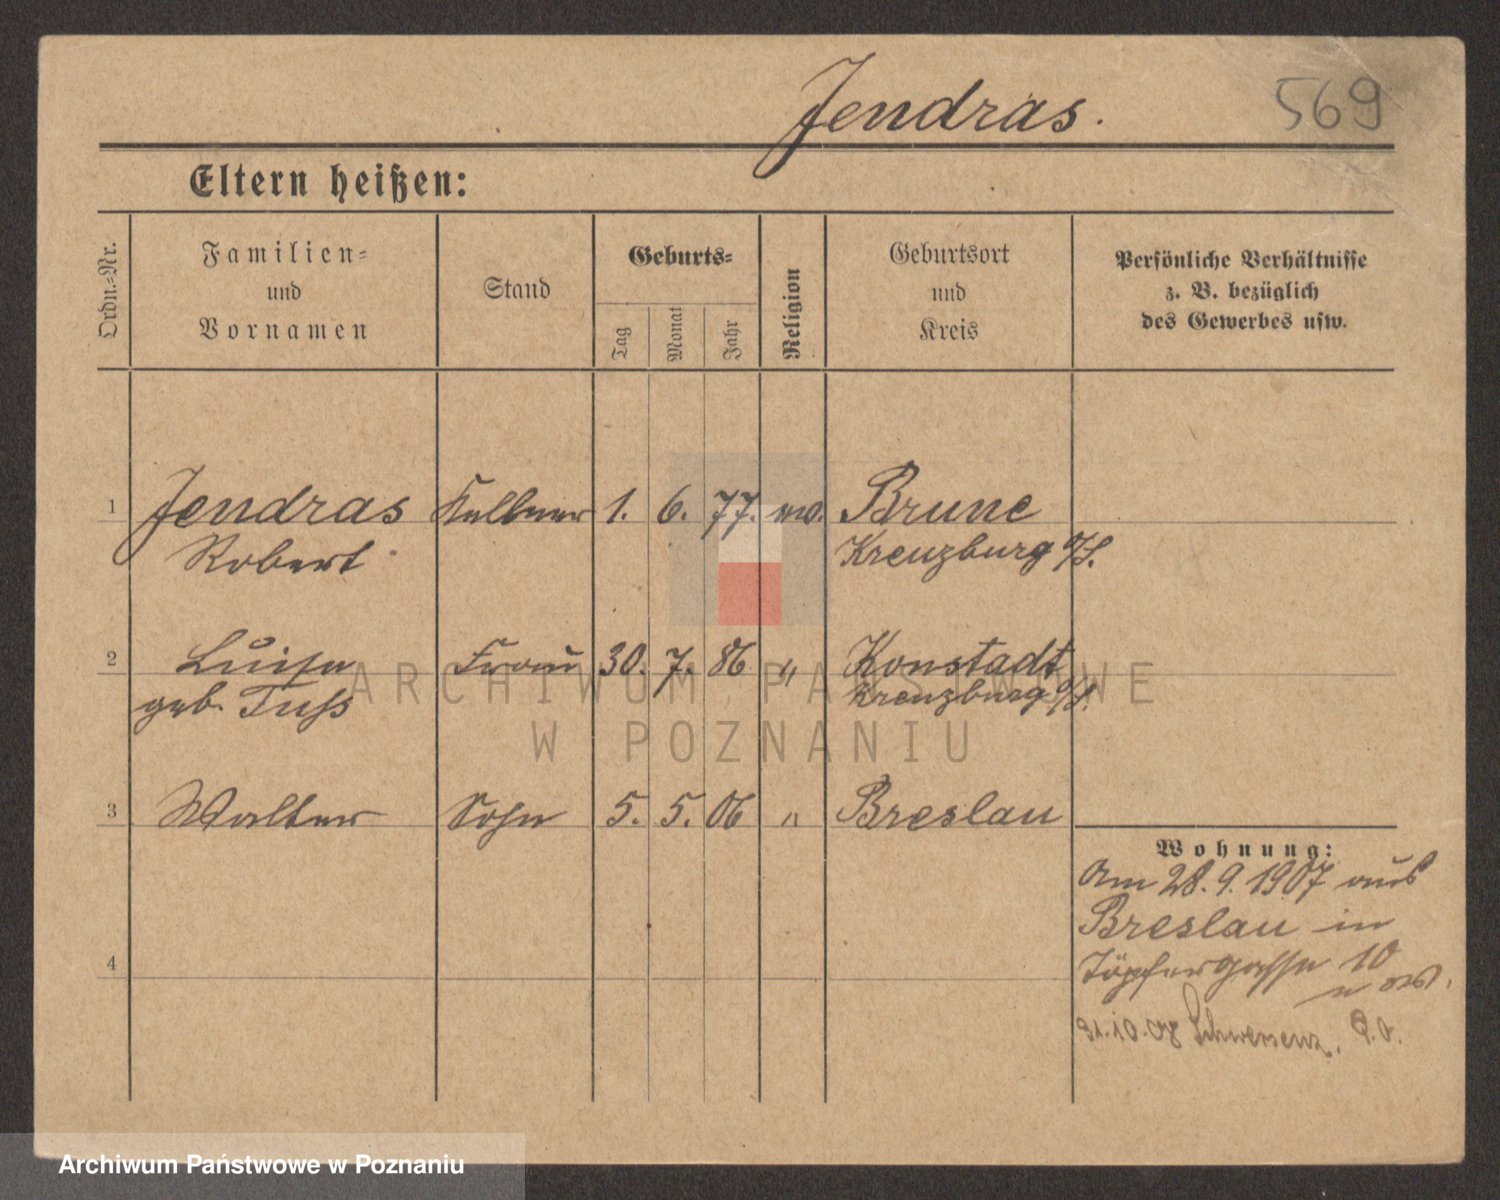 Jendras.
569
Eltern heißen:
Ordn.-Nr.
Familien-
und
Vornamen
Stand
Geburts-
Tag
Monat
Jahr
Religion
Geburtsort
und
Kreis
Persönliche Verhältnisse
z. B. bezüglich
des Gewerbes usw.
1 Jendras Kellner 1. 6. 77. ev. Brune
Robert Kreuzburg O/S.
2 Luise Frau 30. 7. 86 " Konstadt
geb. Fuhs Kreuzburg O/S.
3 Walter Sohn 5. 5. 06 " Breslau
Wohnung:
Am 28.9.1907 aus
Breslau in
Töpfergasse 10
4
31.10.08 Schwersenz.
ARCHIWUM PAŃSTWOWE
W POZNANIU
Archiwum Państwowe w Poznaniu